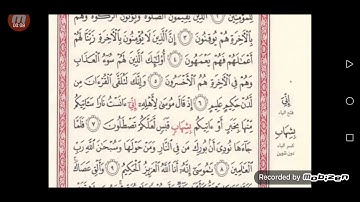 00:09
لِلْمُؤْمِنِينَ ۝٢ ٱلَّذِينَ يُقِيمُونَ ٱلصَّلَوٰةَ وَيُؤْتُونَ ٱلزَّكَوٰةَ وَهُم
بِٱلْءَاخِرَةِ هُمْ يُوقِنُونَ ۝٣ إِنَّ ٱلَّذِينَ لَا يُؤْمِنُونَ بِٱلْءَاخِرَةِ زَيَّنَّا لَهُمْ
أَعْمَٰلَهُمْ فَهُمْ يَعْمَهُونَ ۝٤ أُو۟لَٰٓئِكَ ٱلَّذِينَ لَهُمْ سُوٓءُ ٱلْعَذَابِ
وَهُمْ فِى ٱلْءَاخِرَةِ هُمُ ٱلْأَخْسَرُونَ ۝٥ وَإِنَّكَ لَتُلَقَّى ٱلْقُرْءَانَ مِن
لَّدُنْ حَكِيمٍ عَلِيمٍ ۝٦ إِذْ قَالَ مُوسَىٰ لِأَهْلِهِۦٓ إِنِّىَ ءَانَسْتُ نَارًا سَـَٔاتِيكُم
مِّنْهَا بِخَبَرٍ أَوْ ءَاتِيكُم بِشِهَابِ قَبَسٍ لَّعَلَّكُمْ تَصْطَلُونَ ۝٧ فَلَمَّا
جَآءَهَا نُودِىَ أَنۢ بُورِكَ مَن فِى ٱلنَّارِ وَمَنْ حَوْلَهَا وَسُبْحَٰنَ ٱللَّهِ رَبِّ
ٱلْعَٰلَمِينَ ۝٨ يَٰمُوسَىٰٓ إِنَّهُۥٓ أَنَا ٱللَّهُ ٱلْعَزِيزُ ٱلْحَكِيمُ ۝٩ وَأَلْقِ عَصَاكَ
إِنِّىَ
فتح الياء
بِشِهَابِ
كسر الباء
دون تنوين
Recorded by
Mobizen